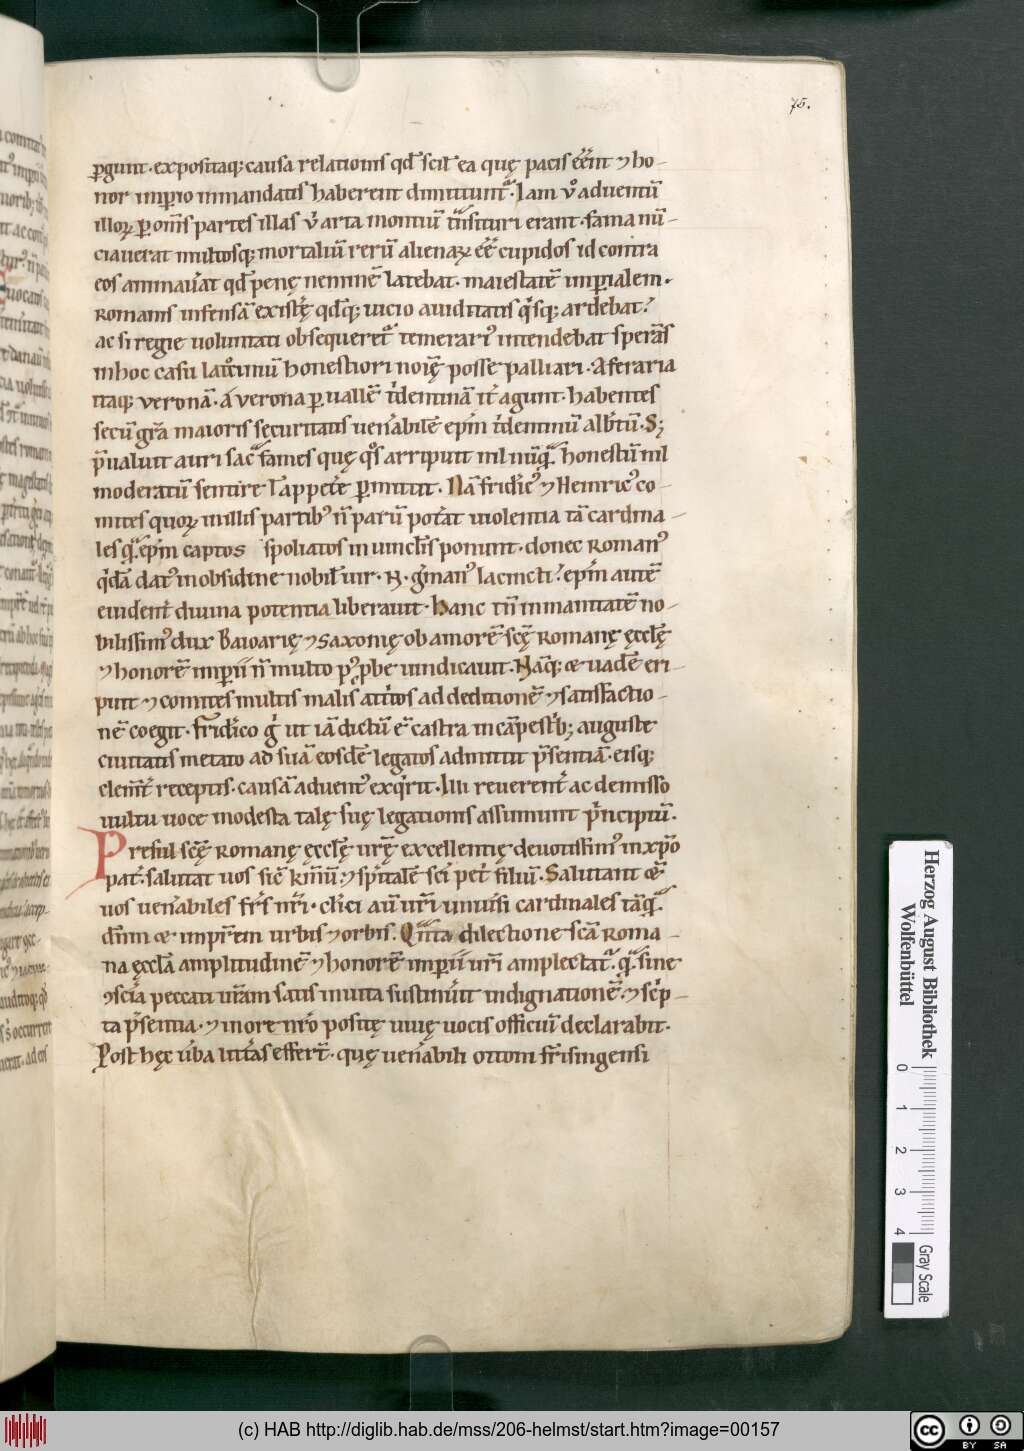 75.
ꝑgunt. expositaq; causa relationis qđ scil̄ ea quę pacis eēnt ⁊ ho-
nor imꝑio inmandatis haberent dimittunt᷑. Iam v̊ aduentū
illoꝝ ꝑ om̄s partes illas ꝟ arta montiū t̃nsituri erant. fama nū-
ciauerat multosq; mortaliū rerū alienaꝝ eē cupidos id contra
eos animaůat qđ penę neminē latebat. maiestatē imꝑialem.
Romanis infensā existe᷑ qđq; uicio auiditatis q̓sq; ardebat?
ac si regie uoluntati obsequeret᷑ temerari᷒ intendebat sperās
in hoc casu lat̊ciniū honestiori noīe posse palliari. A feraria
itaq; veronā. á verona ꝑ uallē t̓dentinā it᷑ agunt. habentes
secū gr̄a maioris sęcuritatis ueňabilē ep̄m t̓dentinū alb̓tū. S;
p̄ualuit auri sac̃ fames quę q̊s arripuit nil nūq̃ honestū nil
moderatū sentire ł appet̓e ꝑmittit. Nā fridic᷒ ⁊ Heinric᷒ co-
mites quoꝝ in illis partib᷒ n̄ parū pot̓at uiolentia tā cardina-
les q̃ ep̄m captos spoliatos in uincl̄is ponunt. donec Roman᷒
q̓dā dat᷒ in obsidine nobil̄ uir. N. g̓man᷒ Iacincti? ep̄m autē
euident̓ diuina potentia liberauit. Hanc tn̄ inmanitatē no-
bilissim᷒ dux Baioarię ⁊ Saxonię ob amorē sc̄ę Romanę ęccl̄ę
⁊ honorē imꝑii n̄ multo p᷒ ꝓbe uindicauit. Nāq; ⁊ uadē eri-
puit ⁊ comites multis malis att̓tos ad deditionē ⁊ satisfactio-
nē coegit. Fridico g̓ ut iā dictū ē castra in cāpestb; auguste
ciuitatis metato ad suā eosdē legatos admittit p̄sentiā. eisq;
clem̄t̓ receptis. causā aduent᷒ exq̓rit. Illi reuerent̓ ac demisso
uultu uoce modesta talę suę legationis assumunt p̓ncipiū.
Presul sc̄ę Romanę ęccl̄ę ur̄ę excellentię deuotissim᷒ in xp̄o
pat̓. salutat uos sic̄ k̄mū. ⁊ sp̄italē sc̄i pet̓ filiū. Salutant ⁊
uos ueňabiles fr̄s nr̄i. cl̓ici aū ur̄i uniůsi cardinales tāq̃
dn̄m ⁊ imp̄rem urbis ⁊ orbis. Qn̄ta dilectione sc̄a Roma-
na ęccl̄a amplitudinē ⁊ honorē imꝑii ur̄i amplectat᷑. q̃ sine
ꝯscīa peccati ur̄am satis inuita sustinůit indignationē. ⁊ sc̓p-
ta p̄sentia. ⁊ in ore nr̄o positę uiuę uocis officiū declarabit.
Post hęc ůba litt̓as effert̓. quę ueňabili ottoni fr̄isingensi
Herzog August Bibliothek
Wolfenbüttel
0 1 2 3 4
Gray Scale
(c) HAB http://diglib.hab.de/mss/206-helmst/start.htm?image=00157
cc BY SA